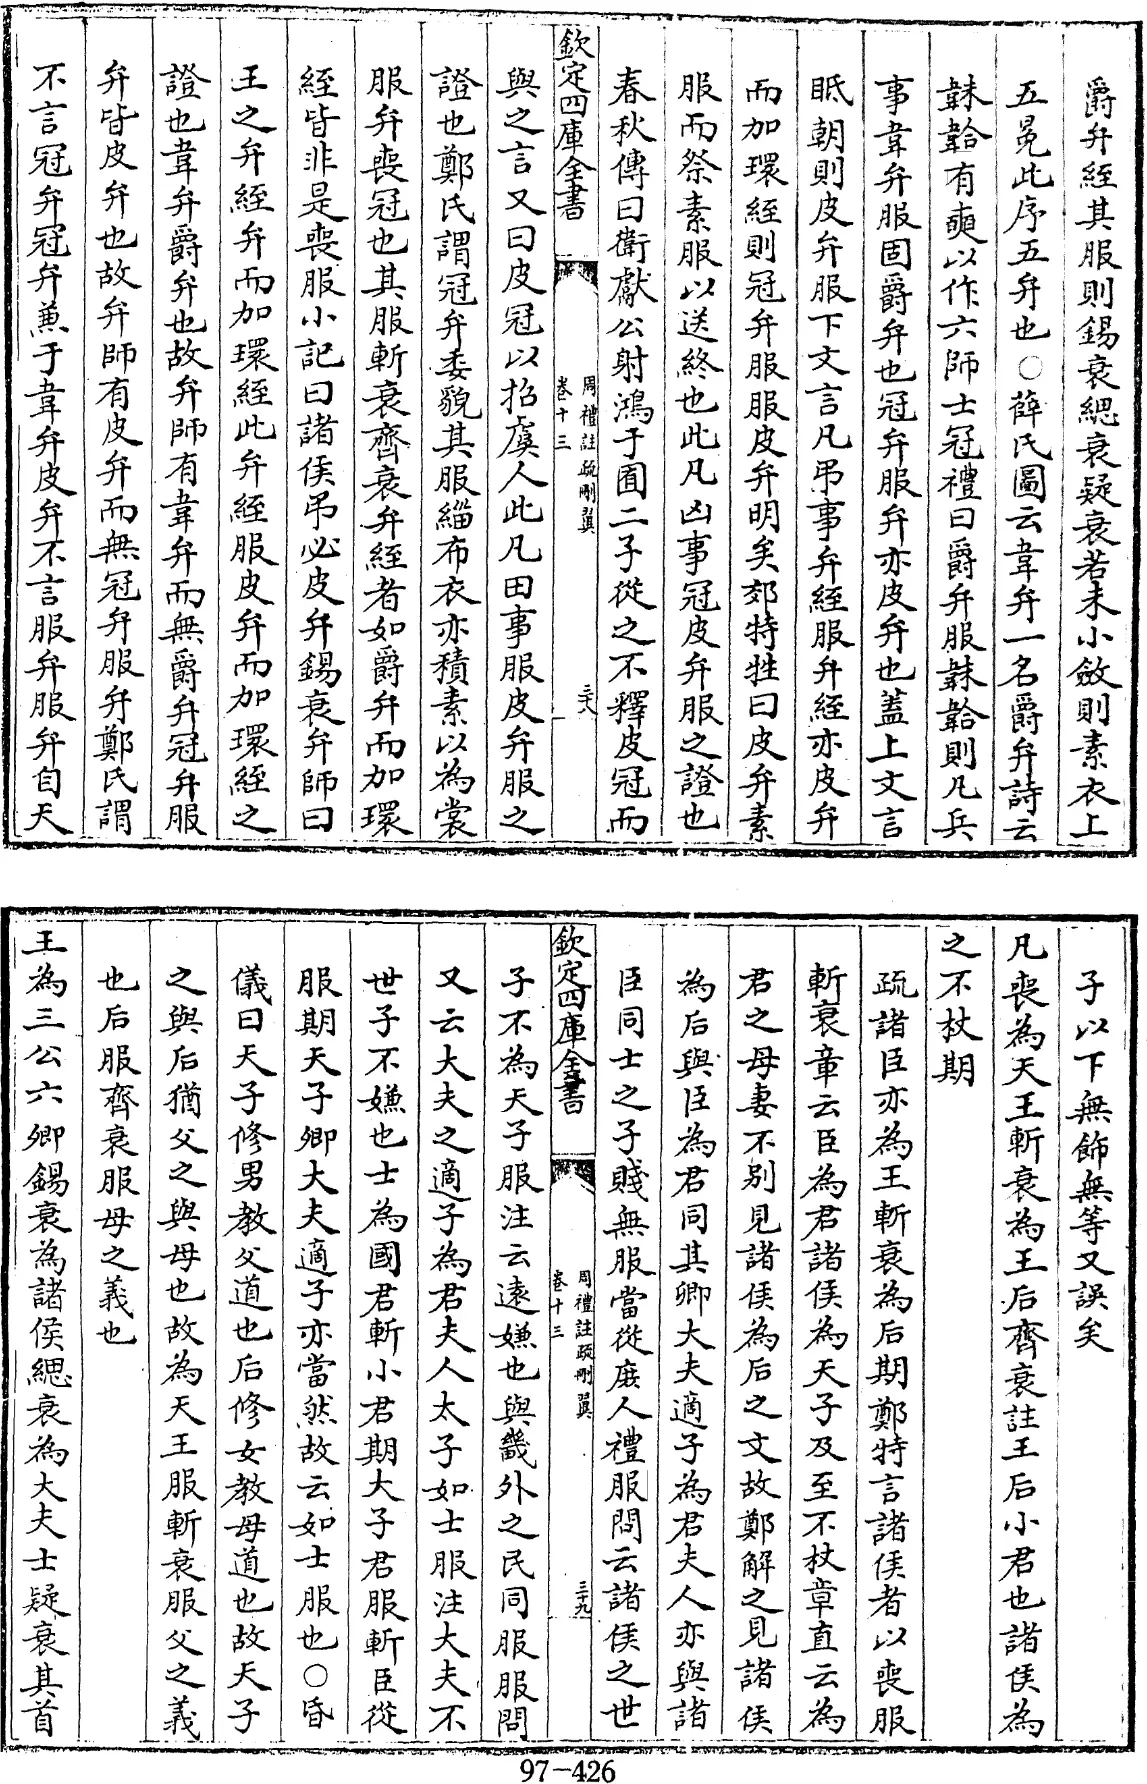 爵弁絰其服則錫衰緦衰疑衰若未小斂則素衣上
五冕此序五弁也○薛氏圖云韋弁一名爵弁詩云
韎韐有奭以作六師士冠禮曰爵弁服韎韐則凡兵
事韋弁服固爵弁也冠弁服弁亦皮弁也蓋上文言
眂朝則皮弁服下文言凡弔事弁絰服弁絰亦皮弁
而加環絰則冠弁服服皮弁明矣郊特牲曰皮弁素
服而祭素服以送終也此凡凶事冠皮弁服之證也
春秋傳曰衛獻公射鴻于囿二子從之不釋皮冠而
欽定四庫全書
周禮註疏刪翼
卷十三
三十八
與之言又曰皮冠以招虞人此凡田事服皮弁服之
證也鄭氏謂冠弁委貌其服緇布衣亦積素以為裳
服弁喪冠也其服斬衰齊衰弁絰者如爵弁而加環
絰皆非是喪服小記曰諸侯弔必皮弁錫衰弁師曰
王之弁絰弁而加環絰此弁絰服皮弁而加環絰之
證也韋弁爵弁也故弁師有韋弁而無爵弁冠弁服
弁皆皮弁也故弁師有皮弁而無冠弁服弁鄭氏謂
不言冠弁冠弁兼于韋弁皮弁不言服弁服弁自天
子以下無飾無等又誤矣
凡喪為天王斬衰為王后齊衰註王后小君也諸侯為
之不杖期
疏諸臣亦為王斬衰為后期鄭特言諸侯者以喪服
斬衰章云臣為君諸侯為天子及至不杖章直云為
君之母妻不別見諸侯為后之文故鄭解之見諸侯
為后與臣為君同其卿大夫適子為君夫人亦與諸
臣同士之子賤無服當從庶人禮服問云諸侯之世
欽定四庫全書
周禮註疏刪翼
卷十三
三十九
子不為天子服注云遠嫌也與畿外之民同服服問
又云大夫之適子為君夫人太子如士服注大夫不
世子不嫌也士為國君斬小君期大子君服斬臣從
服期天子卿大夫適子亦當然故云如士服也○昏
儀曰天子修男教父道也后修女教母道也故天子
之與后猶父之與母也故為天王服斬衰服父之義
也后服齊衰服母之義也
王為三公六卿錫衰為諸侯緦衰為大夫士疑衰其首
97-426